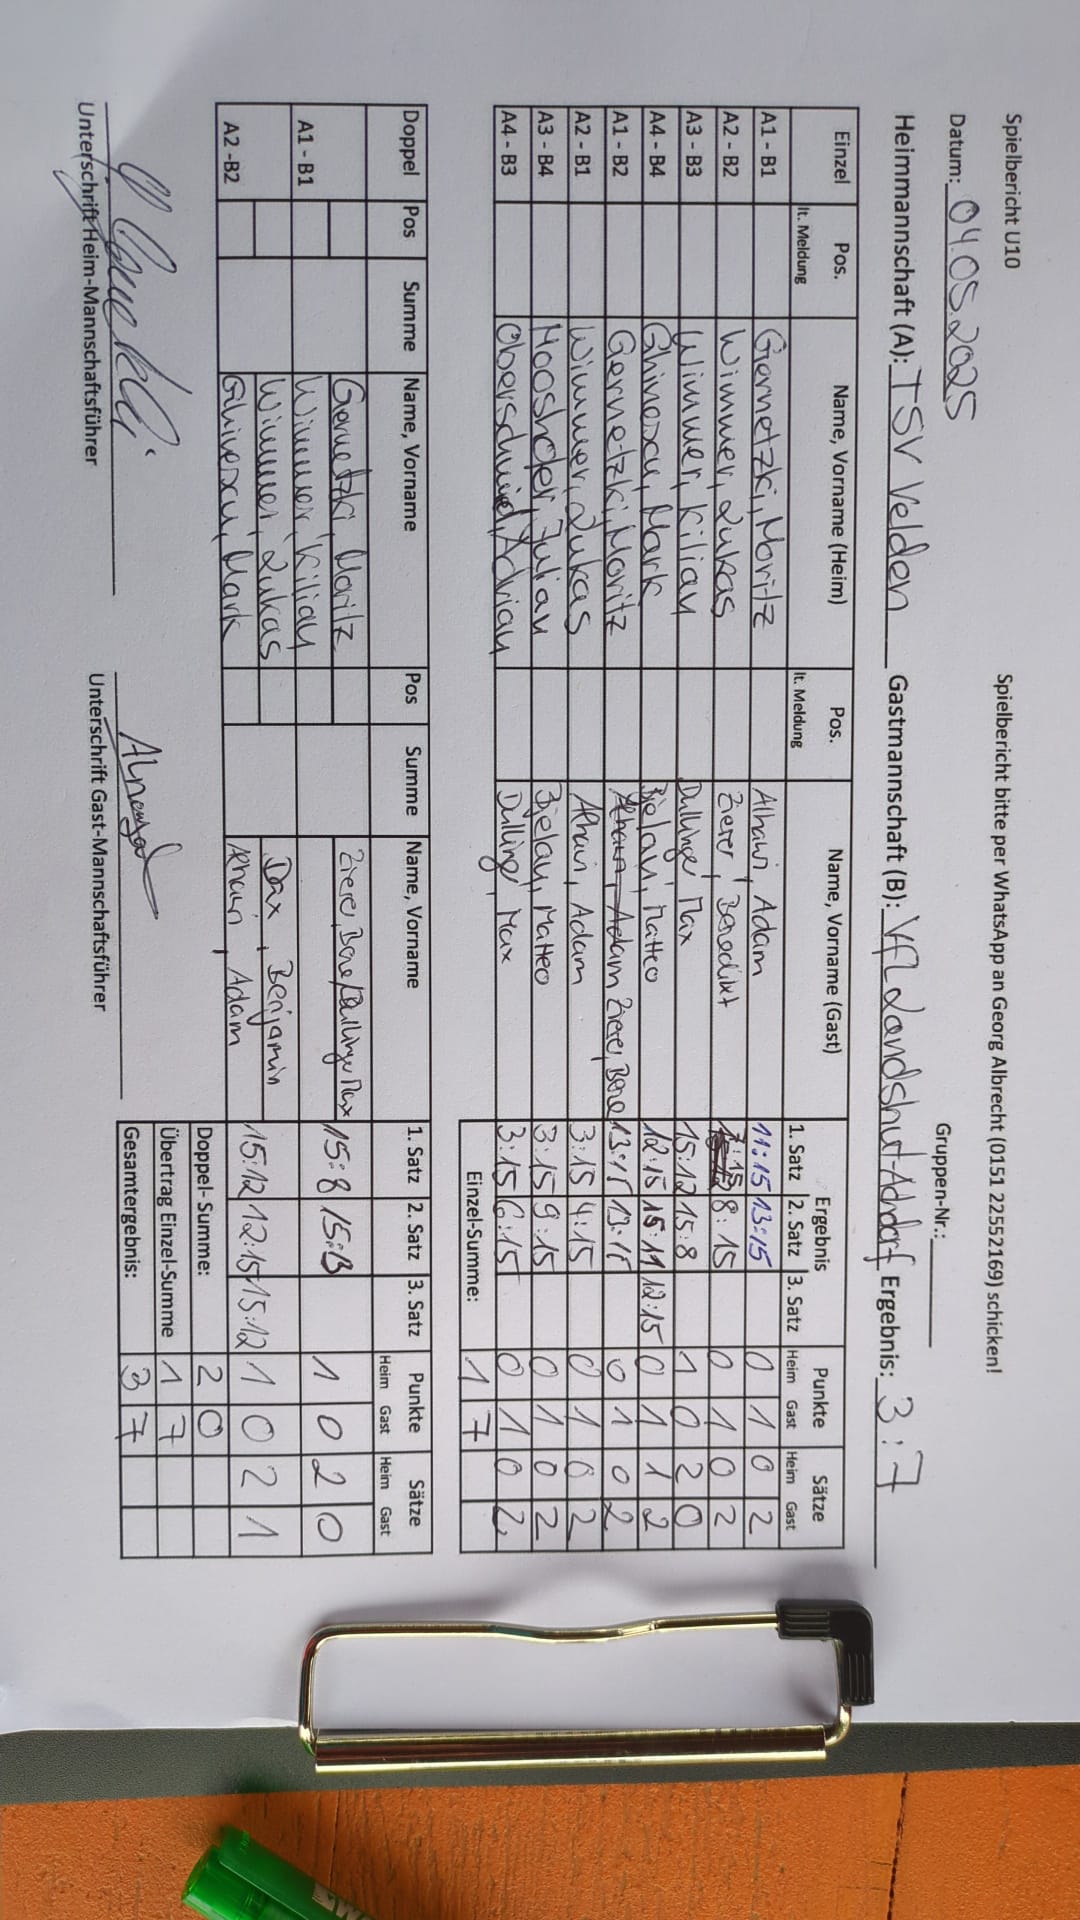 Spielbericht U10
Spielbericht bitte per WhatsApp an Georg Albrecht (0151 22552169) schicken!
Datum: 04.05.2025
Gruppen-Nr.:
Heimmannschaft (A): TSV Velden Gastmannschaft (B): VfL Landshut-Achdorf Ergebnis: 3:7
Einzel Pos. lt. Meldung Name, Vorname (Heim) Pos. lt. Meldung Name, Vorname (Gast) Ergebnis 1. Satz 2. Satz 3. Satz Punkte Heim Gast Sätze Heim Gast
A1 - B1 Gernetzki, Moritz Alhawi, Adam 11:15 13:15 0 1 0 2
A2 - B2 Wimmer, Lukas Zierer, Benedikt 7:15 8:15 0 1 0 2
A3 - B3 Wimmer, Kilian Dullinger Max 15:12 15:8 1 0 2 0
A4 - B4 Ghinescu, Mark Bjelavi, Matteo 12:15 15:11 12:15 0 1 1 2
A1 - B2 Gernetzki, Moritz Adam Zierer, Bene 13:15 13:15 0 1 0 2
A2 - B1 Wimmer, Lukas Alhawi, Adam 3:15 4:15 0 1 0 2
A3 - B4 Mooshofer, Julian Matteo 3:15 9:15 0 1 0 2
A4 - B3 Oberschmid, Adrian Dullinger Max 3:15 6:15 0 1 0 2
Einzel-Summe: 1 7
Doppel Pos Summe Name, Vorname Pos Summe Name, Vorname 1. Satz 2. Satz 3. Satz Punkte Heim Gast Sätze Heim Gast
Gernetzki, Moritz Zierer, Bene/Dullinger Max
A1 - B1 Wimmer, Kilian 15:8 15:13 1 0 2 0
Wimmer, Lukas Dax, Benjamin
A2 -B2 Ghinescu, Mark Alhawi, Adam 15:12 12:15 15:12 1 0 2 1
Doppel- Summe: 2 0
Übertrag Einzel-Summe 1 7
Gesamtergebnis: 3 7
Unterschrift Heim-Mannschaftsführer
Unterschrift Gast-Mannschaftsführer